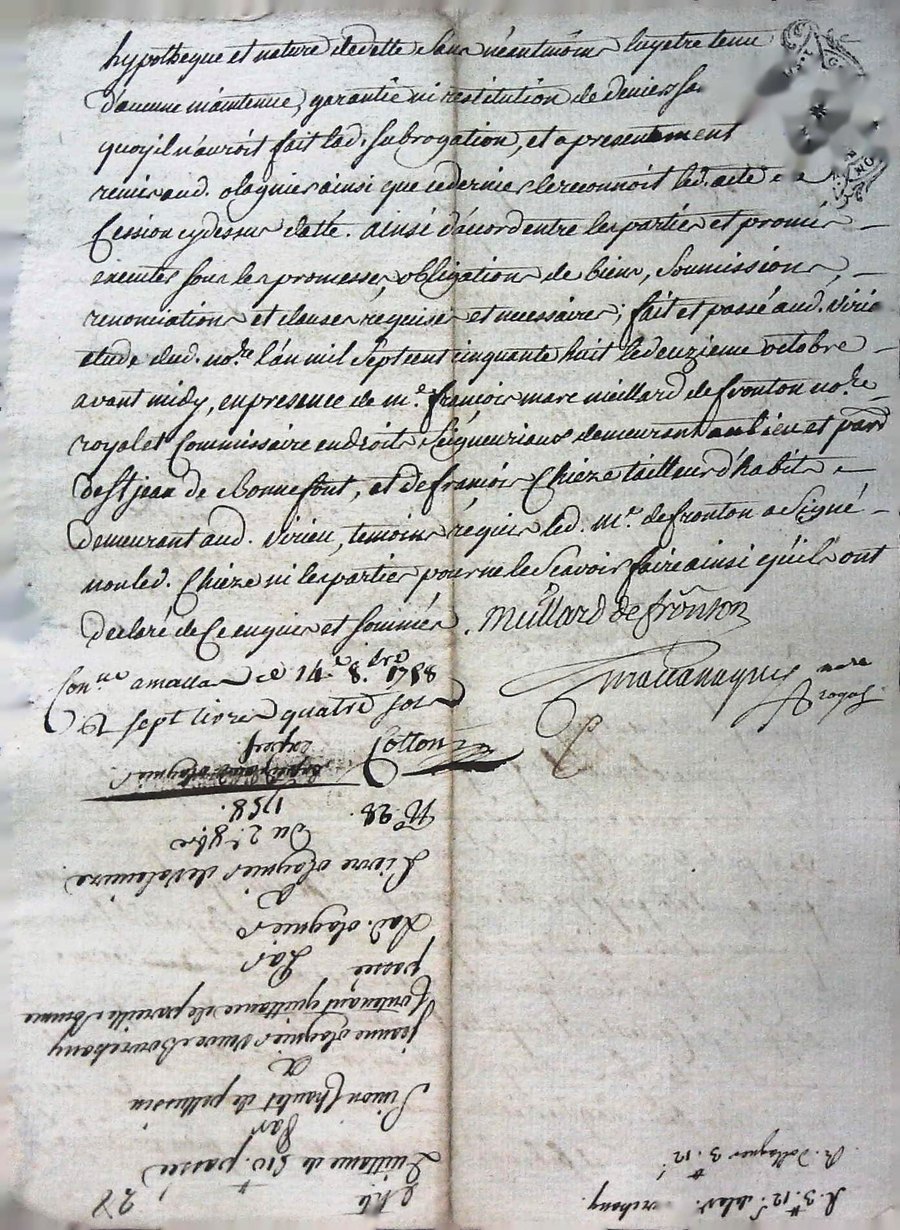 hypotheque et nature de dette sans néantmoins luy etre tenu
d'aucune maintenue, garantie ni restitution de deniers sa
quoy il n'auroit fait lad. subrogation, et a presentement
remis aud. olagnier ainsi que ce dernier le reconnoit led. acte
Cession cy dessus datté. ainsi d'acord entre les parties et promis
executer sous les promesses, obligations de biens, soumissions,
renonciations et clauses requises et necessaires; fait et passé aud. virieu
etude dud. no.re l'an mil sept cent cinquante huit le deuzieme octobre
avant midy, en presence de m.e françois marc meillard de fronton no.re
royal et Commissaire en droits seigneuriaux demeurant au lieu et par.
de St jean de Bonnefont, et de françois Chieze tailleur d'habits
demeurant aud. virieu, temoins requis led. m.e de fronton a signé
non led. Chieze ni les parties pour ne le scavoir faire ainsi qu'ils ont
declaré de ce enquis et sommés. Meillard de frônton
Con.lle a mallau ce 14.e 8.bre 1758
sept livres quatre sols
no.re
royal
Cotton
N.o 28.
1758.
Du 2.e 8bre
Pierre olagnier de
a
Lad. olagnier
Par
passée
Contenant quittance de pareille somme
jeanne olagnier veuve
a
Simon Chaulet de pellussin
Par
Quittance de 510.# passée
28
R. 3.# 12.s
3.# 12